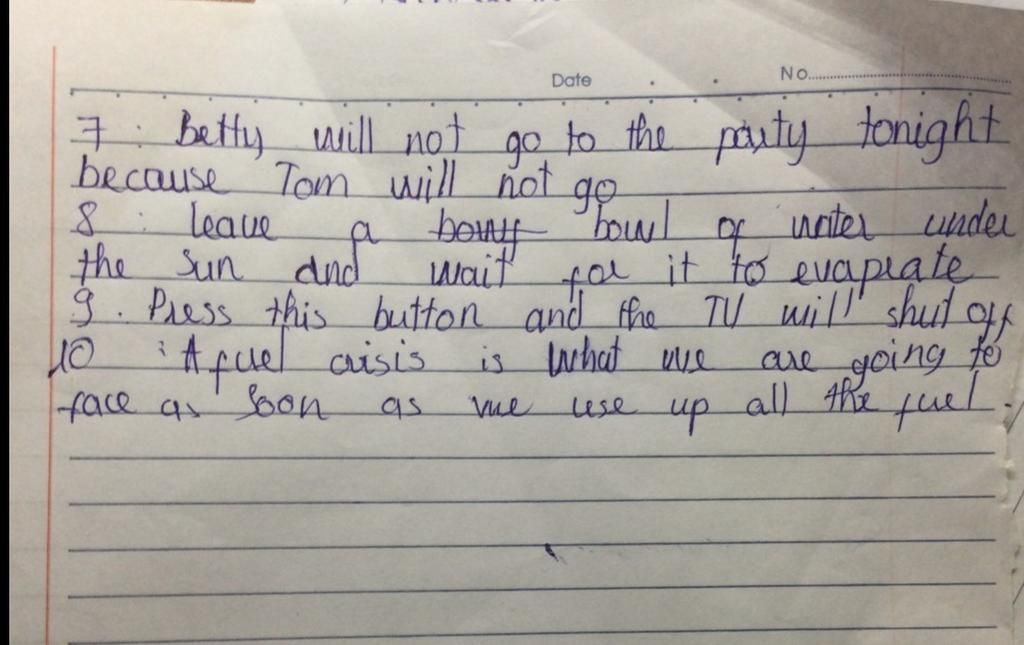 Date No.
7 : Betty will not go to the party tonight
because Tom will not go
8 : leave a bowl of water under
the sun and wait for it to evaprate
9 . Press this button and the TV will shut off
10 : A fuel crisis is what we are going to
face as soon as we use up all the fuel.